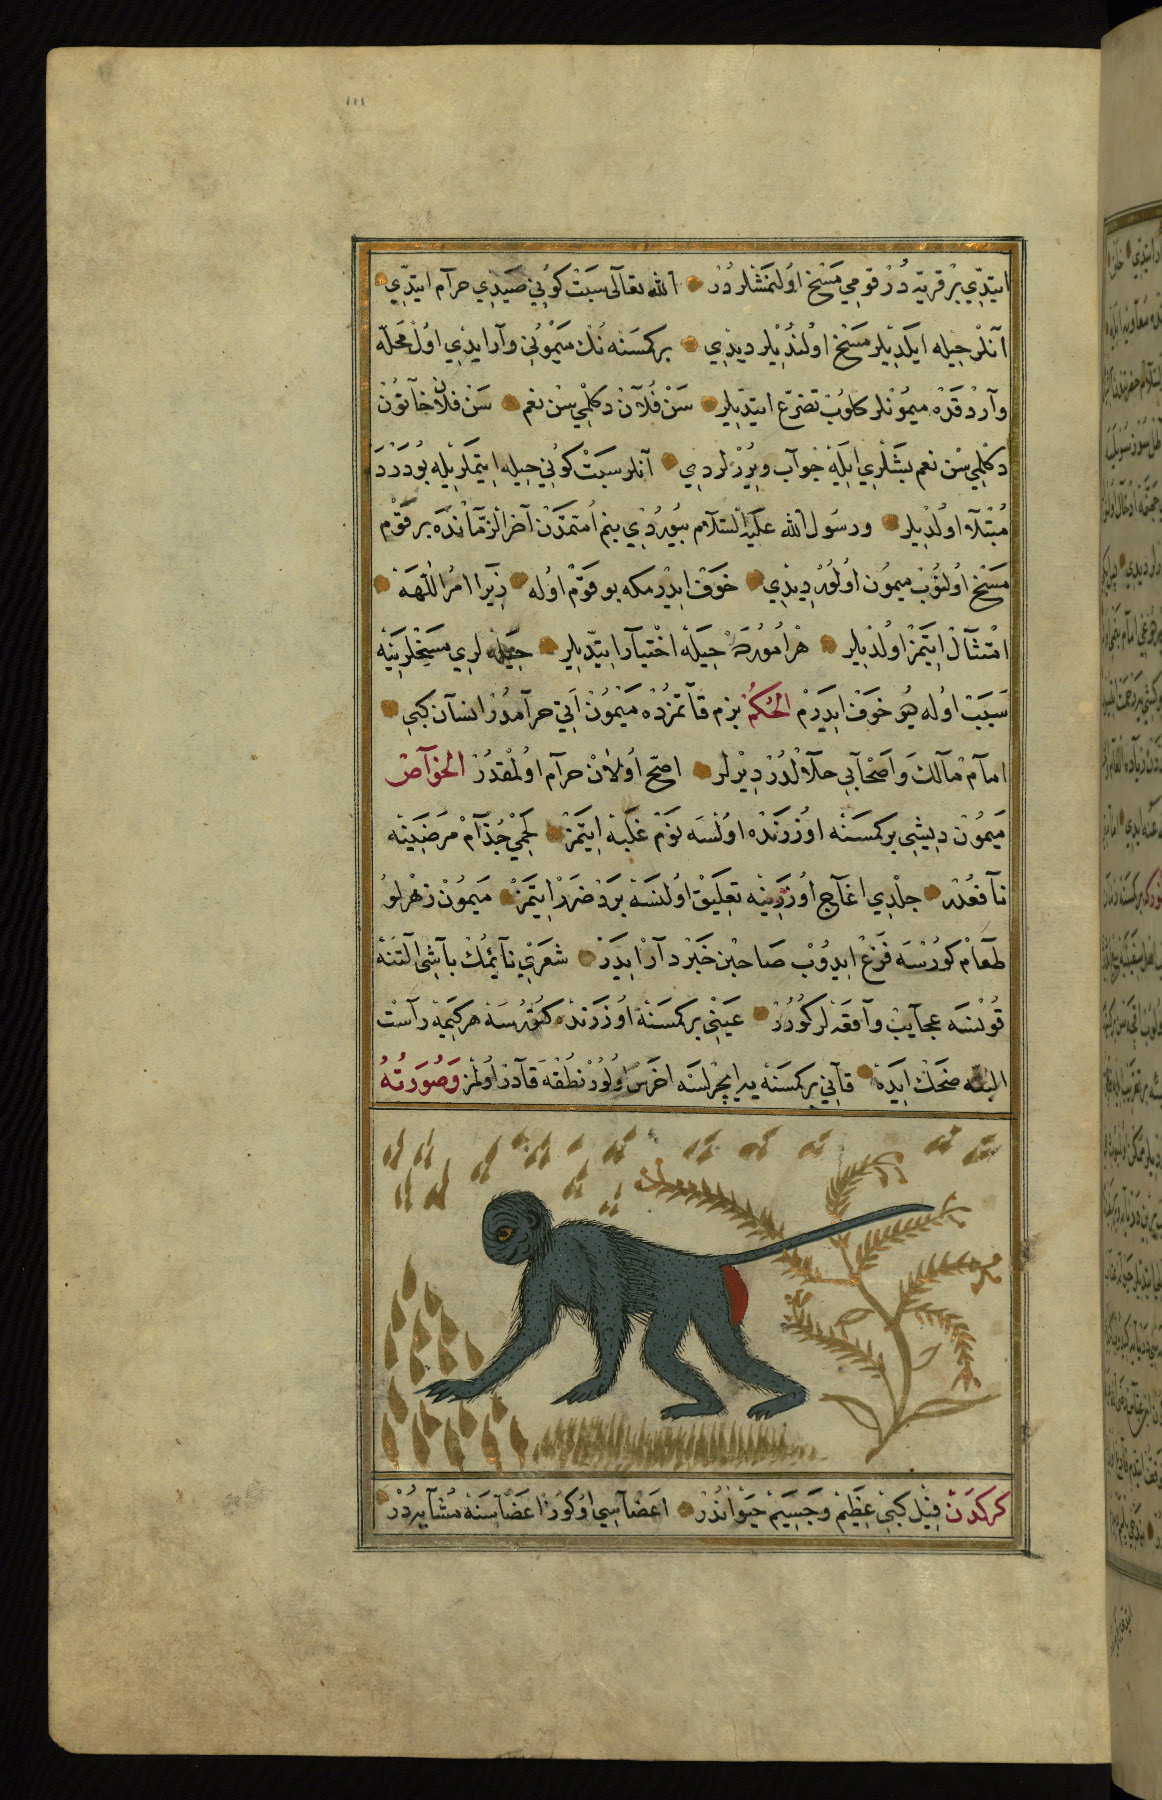 ١١١
ایتدّی بر قریه دُر قومی مَسْخ اولنمشلردُر الله تعالی سَبَتْ کونی صَیدی حرام ایتدّی
آنلر حیله ایلدیلر مَسْخ اولندیلر دیدی بر کمسَنه نُك مَیْمونی وار ایدی اول محلّه
واردقده میمونلر کلوب تضرّع ایتدیلر سَن فُلان دکلمی سن نعم سَن فلان خاتون
دکلمی سن نعم بشلری ایله جواب ویررلردی آنلر سبت کونی حیله ایتملریله بو درده
مُبتلا اولدیلر و رسول الله علیه السّلام بیوردی بنم اُمّتمدن آخر الزّمانده بر قوم
مَسْخ اولنوب میمون اولور دیدی خوف ایدرمکه بو قوم اوله زیرا امر اللّهه
امتثال ایتمز اولدیلر هر امورده حیله اختیار ایتدّیلر حیله لری مسخلرینه
سَبَب اوله دیو خوف ایدرم الحُکم بزم قاتمزده مَیمون اتی حرامدُر انسان کبی
امام مالك و اصحابی حلالدُر دیرلر اصحّ اولان حرام اولمقدر الخواصّ
مَیمون دیشی بر کمسنه اوزرنده اولسه نوم غلبه ایتمز لحمی جُذام مرضینه
نافعدر جلدی اغاج اوزرینه تعلیق اولنسه برد ضرر ایتمز مَیمون زهرلو
طعام کورسه فزع ایدوب صاحبن خبردار ایدر شعری نایمك باشی التنه
قونسه عجایب واقعه لر کورر عینی بر کمسنه اوزرنده کتورسه هر کیمه راست
البته ضحك ایده قانی بر کمسنه یه ایچرلسه اخرس اولور نطقه قادر اولمز وَصُورَتُهُ
کرکدن فیل کبی عظیم و جسیم حیواندر اعضاسی اوکوز اعضاسنه مشابهدر